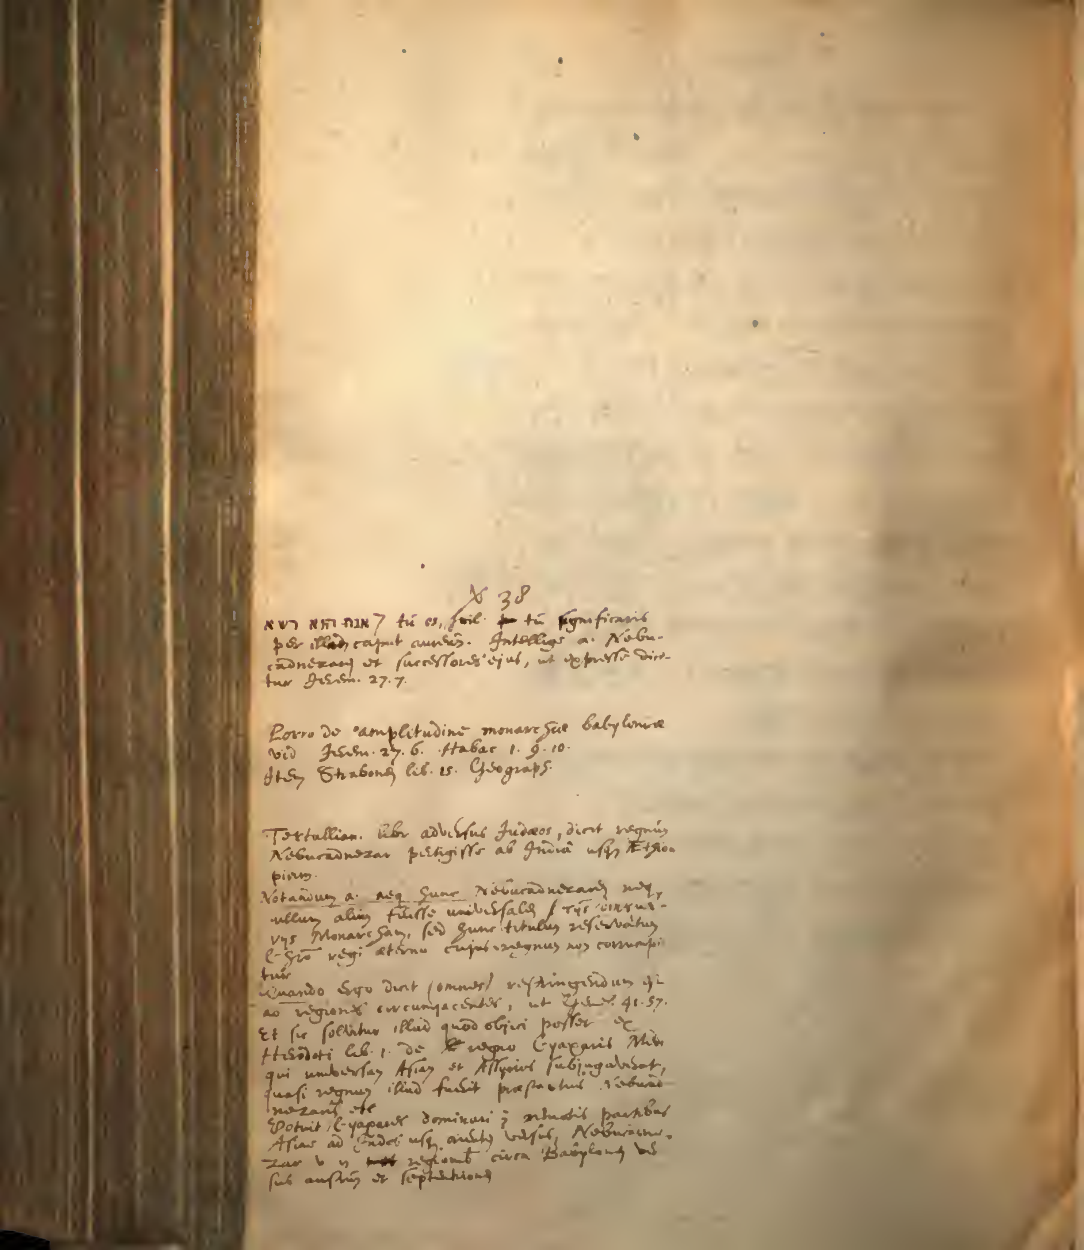 38
אנת הוא רשא] tū es, scil. tū significaris
per illud caput aureū. Intellige a. Nebu-
cadnezarē et successores ejus, ut expresse dici-
tur Jerem. 27.7.
Porro de amplitudine monarchiæ babylonicæ
vid Jerem. 27. 6. Habac 1. 9. 10.
Item Strabonē lib. 15. Geograph.
Tertullian. libr adversus Judæos, dicit regnū
Nebucadnezar pertigisse ab Indiâ usq Æthio
piam.
Notandum a. neq hunc Nebucadnezarē neq
ullum aliū fuisse universalē
Monarcham, sed hunc titulum reservatum
regi æterno cujus regnum non corrumpi
tur
Quando ergo dicit (omnes) restringendum
ad regiones circumjacentes, ut Genes 41.57.
Et sic solvitur illud quod objici posset ex
Herodoti lib. 1. de regno Cyaxaris
qui universam Asiam et Assyrios subjugaverat,
quasi regnum illud fuerit Nebucad-
nezaris etc
Potuit Cyaxares dominari partibus
Asiae ad Indos usq versus, Nebucadne-
zar regionib circa Babylonē ver
sus austrū et septentrionē